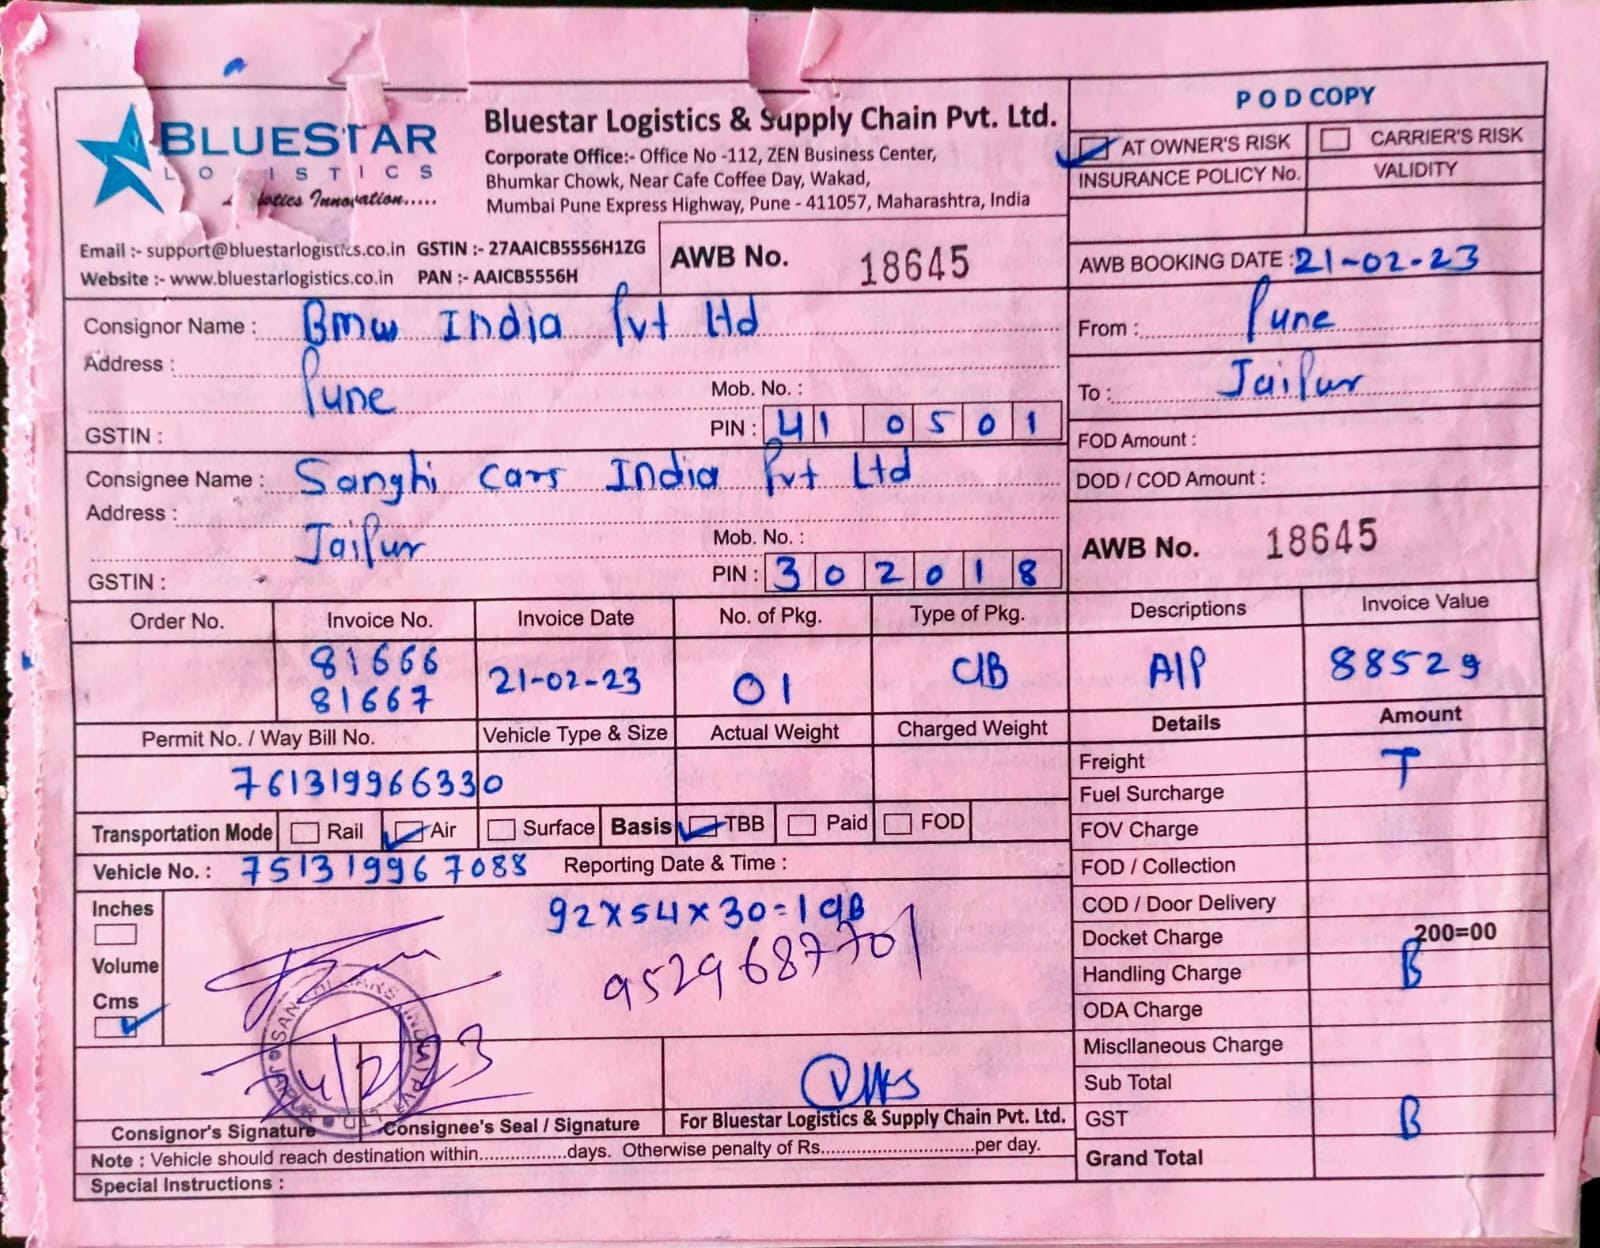 BLUESTAR
Bluestar Logistics & Supply Chain Pvt. Ltd.
Corporate Office:- Office No -112, ZEN Business Center,
Bhumkar Chowk, Near Cafe Coffee Day, Wakad,
Mumbai Pune Express Highway, Pune - 411057, Maharashtra, India
Innovation.....
Email :- support@bluestarlogistics.co.in GSTIN :- 27AAICB5556H1ZG
Website :- www.bluestarlogistics.co.in PAN :- AAICB5556H
AWB No. 18645
POD COPY
AT OWNER'S RISK CARRIER'S RISK
INSURANCE POLICY No. VALIDITY
AWB BOOKING DATE : 21-02-23
Consignor Name : Bmw India Pvt Ltd
Address :
Pune
Mob. No. :
GSTIN :
PIN : 410501
From : Pune
To : Jaipur
FOD Amount :
DOD / COD Amount :
Consignee Name : Sanghi Cars India Pvt Ltd
Address :
Jaipur
Mob. No. :
GSTIN :
PIN : 302018
AWB No. 18645
Order No. Invoice No. Invoice Date No. of Pkg. Type of Pkg. Descriptions Invoice Value
81666
81667 21-02-23 01 C/B A/P 88529
Permit No. / Way Bill No. Vehicle Type & Size Actual Weight Charged Weight Details Amount
761319966330
Transportation Mode Rail Air Surface Basis TBB Paid FOD
Vehicle No. : 751319967088 Reporting Date & Time :
Freight T
Fuel Surcharge
FOV Charge
FOD / Collection
COD / Door Delivery
Docket Charge 200=00
Handling Charge B
ODA Charge
Miscllaneous Charge
Sub Total
GST B
Grand Total
Inches
Volume
Cms
92x54x30=1 C/B
9529687701
SANGHI CARS INDIA PVT LTD JAIPUR
24/2/23
Consignor's Signature Consignee's Seal / Signature For Bluestar Logistics & Supply Chain Pvt. Ltd.
Note : Vehicle should reach destination within................days. Otherwise penalty of Rs.............................per day.
Special Instructions :